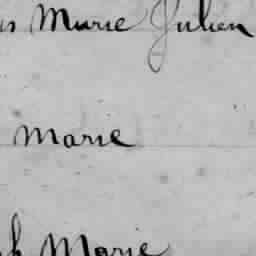 Marie Julien
Marie
Marie